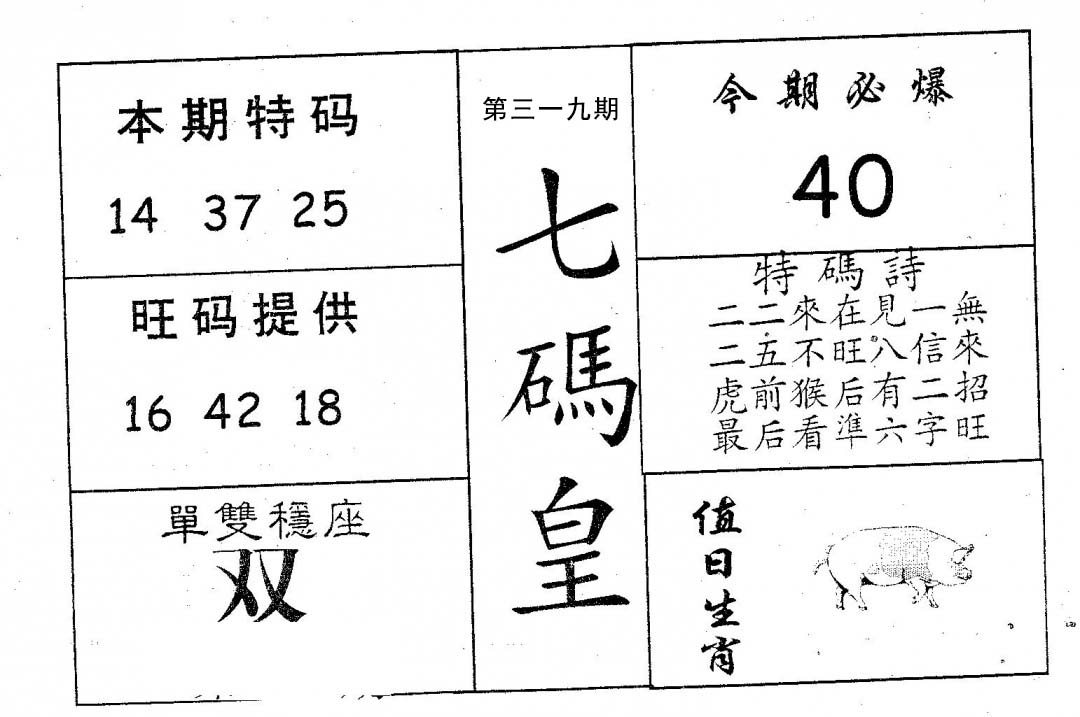 本期特码
14 37 25
旺码提供
16 42 18
單雙穩座
双
第三一九期
七碼皇
今期必爆
40
特碼詩
二二來在見一無
二五不旺八信來
虎前猴后有二招
最后看準六字旺
值日生肖